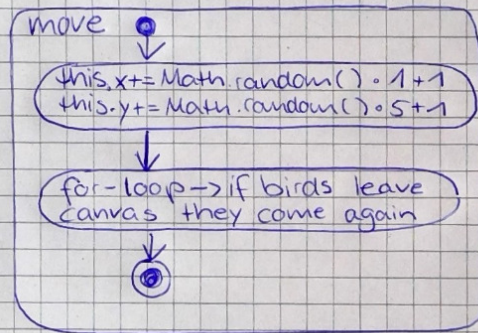 move
this.x+= Math.random() • 1+1
this.y+= Math.random() • 5+1
for-loop-> if birds leave
canvas they come again